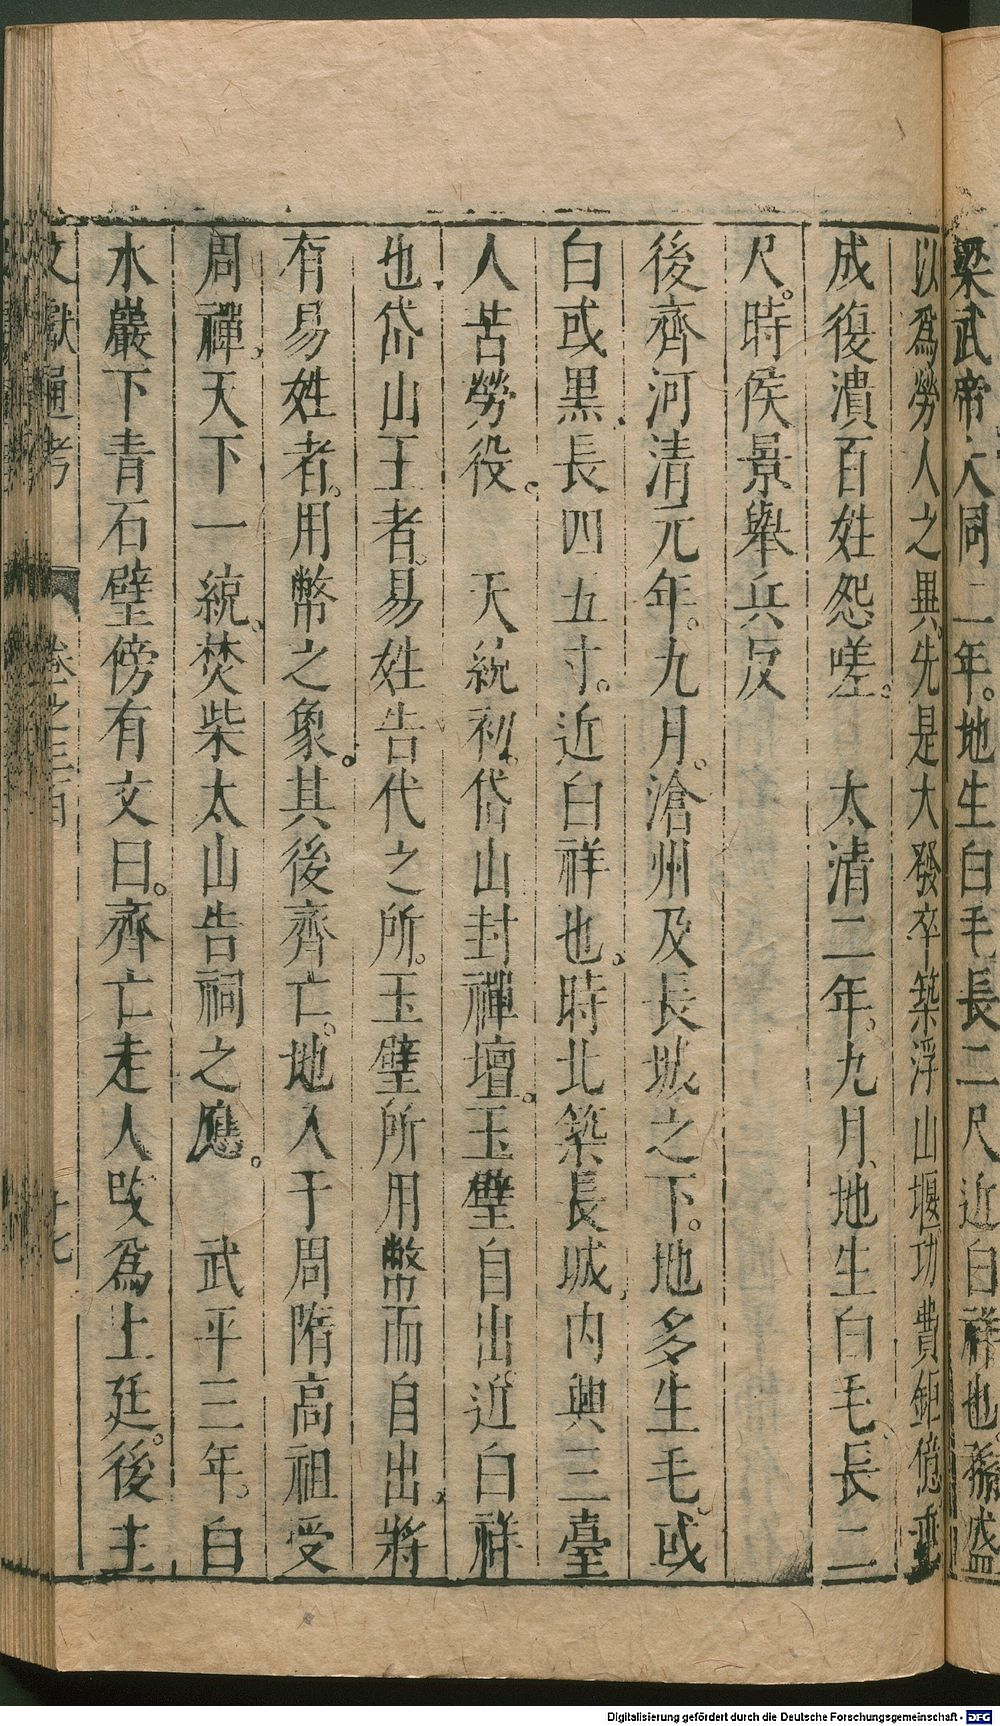 梁武帝大同二年。地生白毛長二尺近白祥也。孫盛
以爲勞人之異。先是大發卒築浮山堰功費鉅億垂
成復潰百姓怨嗟。　太清二年。九月、地生白毛、長二
尺。時侯景舉兵反
後齊河清元年。九月。滄州及長城之下。地多生毛。或
白或黑、長四五寸。近白祥也。時北築長城、内興三臺
人苦勞役。　天統初。岱山封禪壇。玉璧自出近白祥
也、岱山王者。易姓告代之所。玉璧所用幣而自出、將
有易姓者。用幣之象。其後齊亡。地入于周隋高祖受
周禪、天下一統。焚柴太山告祠之應。　武平三年。白
水巖下青石壁傍有文曰。齊亡走人改爲上延。後主
文獻通考　卷之三百　十七
Digitalisierung gefördert durch die Deutsche Forschungsgemeinschaft - DFG